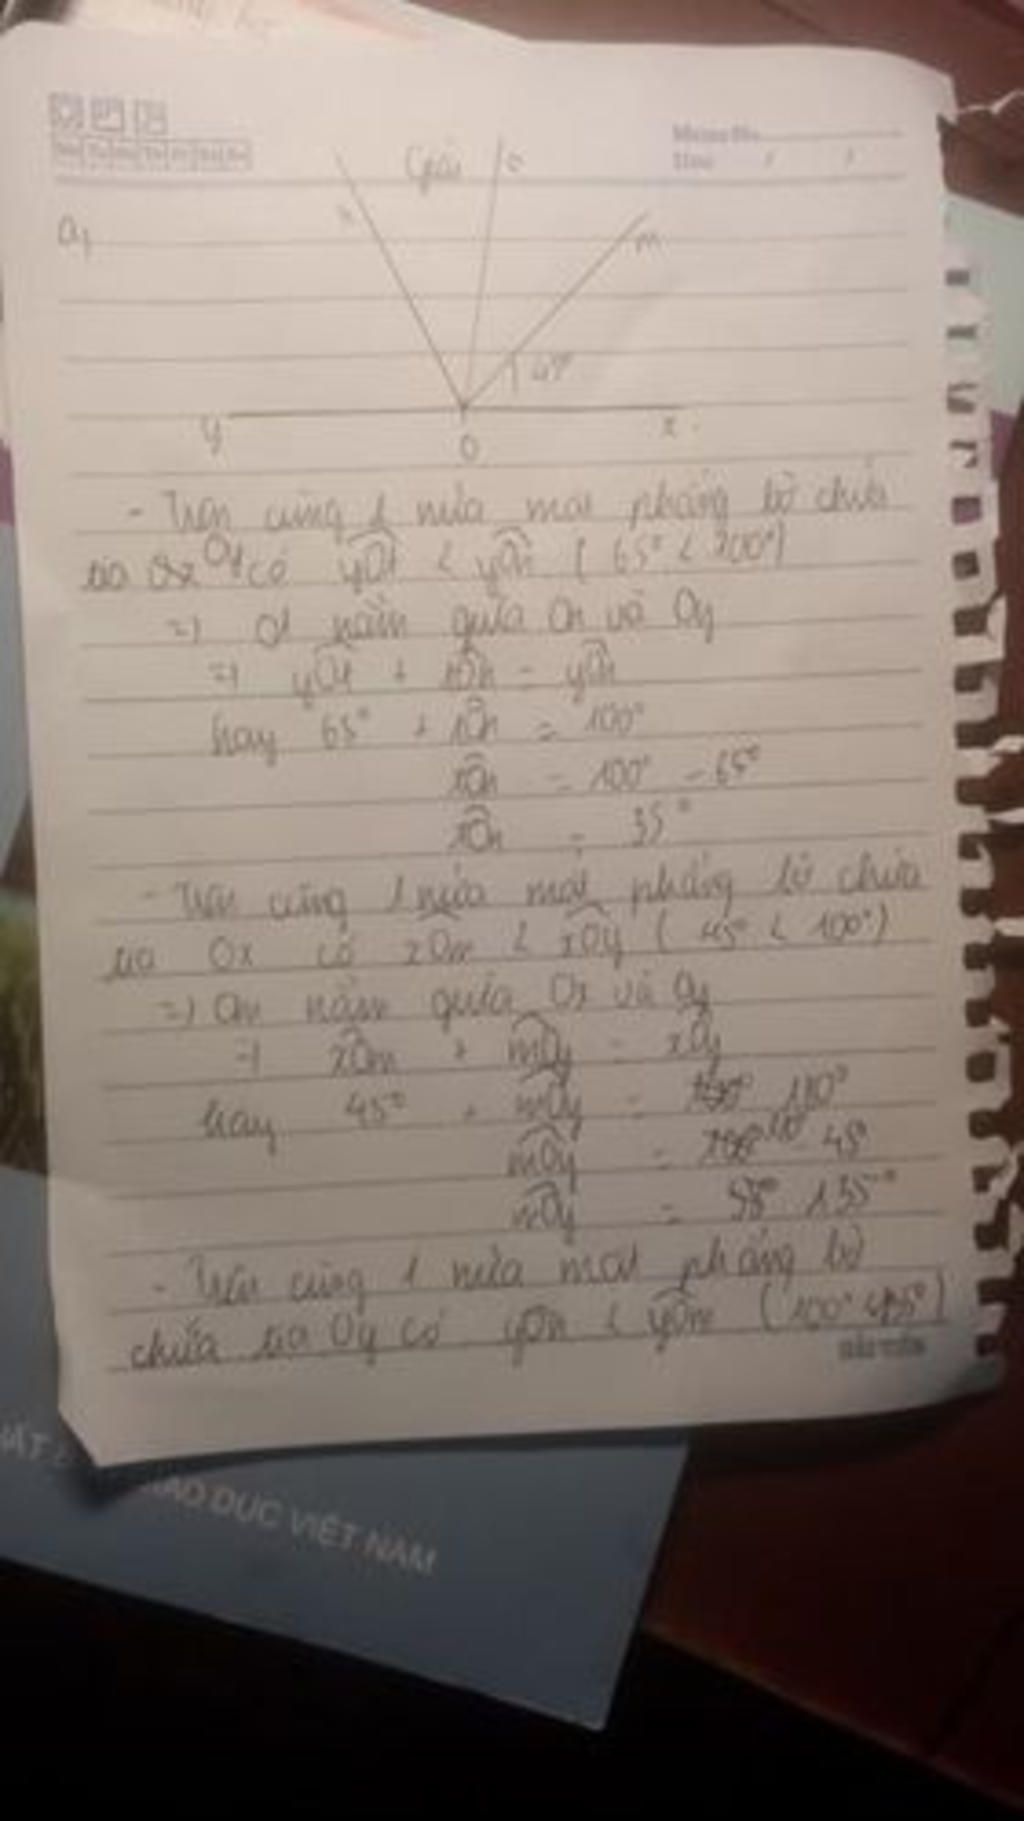 Giải
a,
m
45°
y
O
x
- Trên cùng 1 nửa mặt phẳng bờ chứa
tia Ox Oy có yOt < yOn ( 65° < 100° )
=> Ot nằm giữa On và Oy
=> yOt + tOn = yOn
hay 65° + tOn = 100°
tOn = 100° - 65°
tOn = 35°
- Trên cùng 1 nửa mặt phẳng bờ chứa
tia Ox có xOm < xOy ( 45° < 100° )
=> Om nằm giữa Ox và Oy
=> xOm + mOy = xOy
hay 45° + mOy = 180°
mOy = - 45°
mOy = 135°
- Trên cùng 1 nửa mặt phẳng bờ
chứa tia Oy có yOn < yOm ( 100° < 135° )
HẢI TIẾN
GIÁO DỤC VIỆT NAM